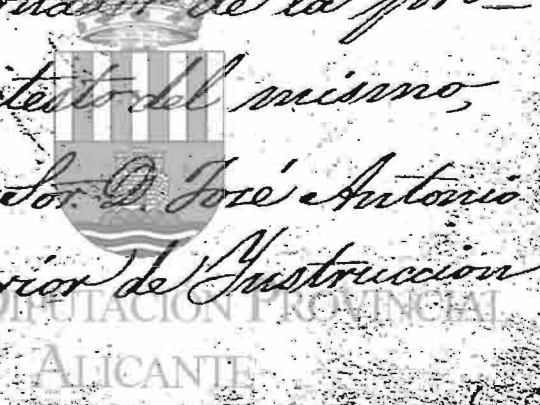 de la
testo del mismo,
Sor. D. José Antonio
rior de Instruccion
DIPUTACIÓN PROVINCIAL
ALICANTE